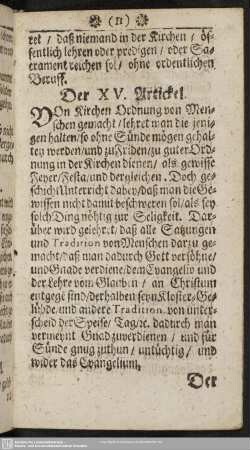 (11)
ret / daß niemand in der Kirchen / öf-
fentlich lehren oder predigen / oder Sa-
crament reichen sol / ohne ordentlichen
Beruff.
Der XV. Artickel.
VOn Kirchen Ordnung von Men-
schen gemacht / lehret man die jeni-
gen halten / so ohne Sünde mögen gehal-
ten werden / und zu Friden / zu guter Ord-
nung in der Kirchen dienen / als gewisse
Feyer / Festa / und dergleichen. Doch ge-
schicht Unterricht dabey / daß man die Ge-
wissen nicht damit beschweren sol / als sey
solch Ding nöhtig zur Seligkeit. Dar-
über wird gelehret / daß alle Satzungen
und Tradition von Menschen darzu ge-
macht / daß man dadurch Gott versöhne /
und Gnade verdiene / dem Evangelio und
der Lehre vom Glauben / an Christum
entgegē sind / derhalben seyn Kloster-Ge-
lübde, und andere Tradition. von unter-
scheid der Speise / Tag / ꝛc. dadurch man
vermeynt Gnad zuverdienen / und für
Sünde gnug zuthun / untüchtig / und
wider das Evangelium.
Der